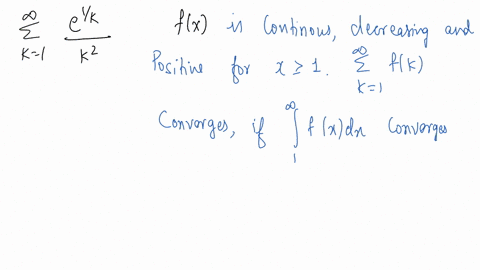 ∞
∑ e^{1/k} / k²
k=1
f(x) is continous, decreasing and
Positive for x ≥ 1. ∑_{k=1}^{∞} f(k)
Converges, if ∫_{1}^{∞} f(x)dx Converges